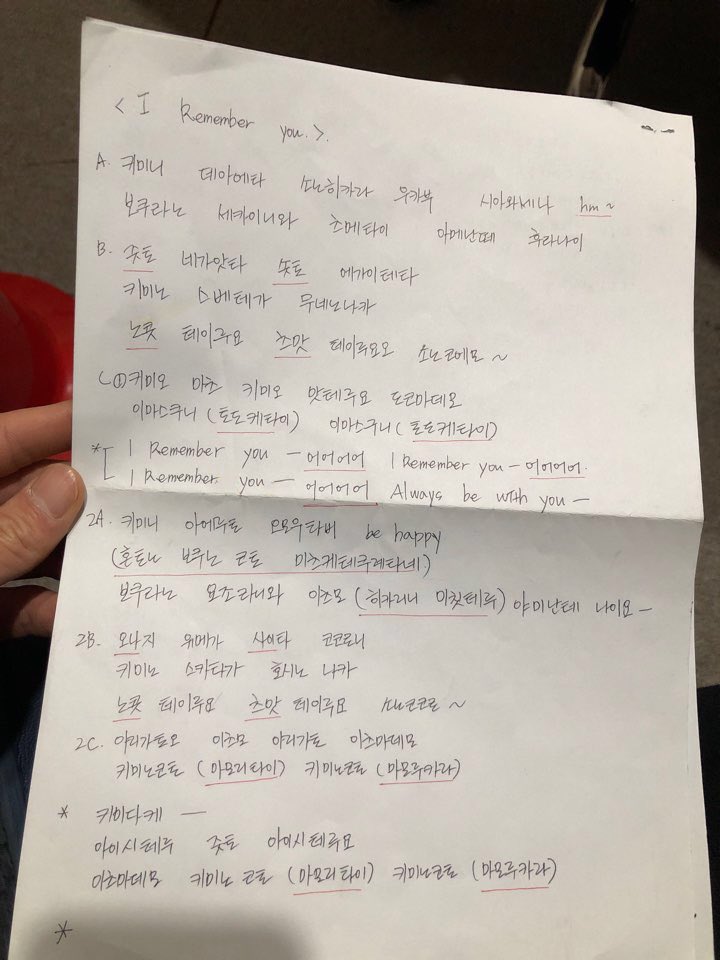 < I Remember you. >.
A. 키미니 데아에타 소노히카라 우카부 시아와세나 hm ~
보쿠라노 세카이니와 츠메타이 아메난떼 후라나이
B. 줏토 네가앗타 솟토 에가이테타
키미노 스베테가 무네노나카
노콧 테이루요 츠맛 테이루요오 소노코에모 ~
C ① 키미오 마츠 키미오 맛테루요 도코마데모
이마스쿠니 (토도케타이) 이마스쿠니 (토도케타이)
* [ I Remember you - 어어어어 I Remember you - 어어어어.
I Remember you - 어어어어 Always be with you -
2A. 키미니 아에루토 오모우타비 be happy
(혼토노 보쿠노 코토 미츠케테쿠레타네)
보쿠라노 요조라니와 이츠모 (히카리니 미칫테루) 야미난테 나이요 -
2B. 오나지 유메가 사이타 코코로니
키미노 스가타가 호시노 나카
노콧 테이루요 츠맛 테이루요 소노코코로 ~
2C. 아리가토오 이츠모 아리가토 이츠마데모
키미노코토 (마모리타이) 키미노코토 (마모루카라)
* 키미다케 —
아이시테루 줏토 아이시테루요
이츠마데모 키미노 코토 (마모리타이) 키미노코토 (마모루카라)
*